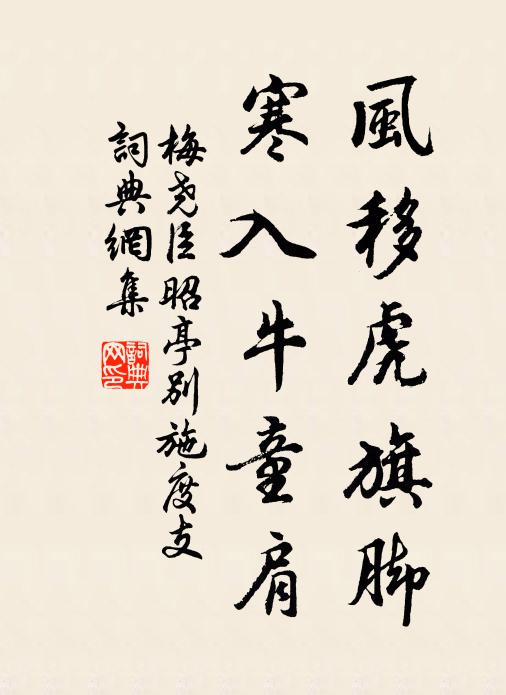 風移虎旗脚
寒入牛童肩
梅尧臣昭亭別施度支
詞典網集
詞典网印